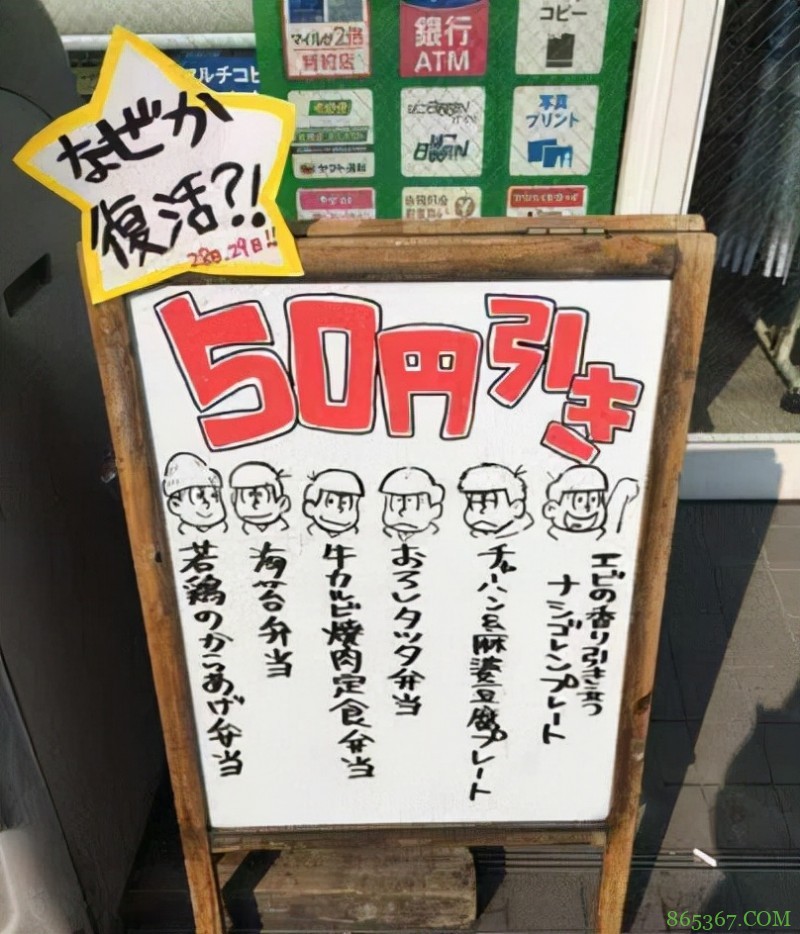 マイルが2倍
銀行
ATM
コピー
マルチコピ
写真
プリント
なぜか
復活?!
28日、29日!!
50円引き
エビの香り引き立つ
ナシゴレンプレート
チャーハン&麻婆豆腐プレート
おろしタツタ弁当
牛カルビ焼肉定食弁当
海苔弁当
若鶏のからあげ弁当
865367.COM